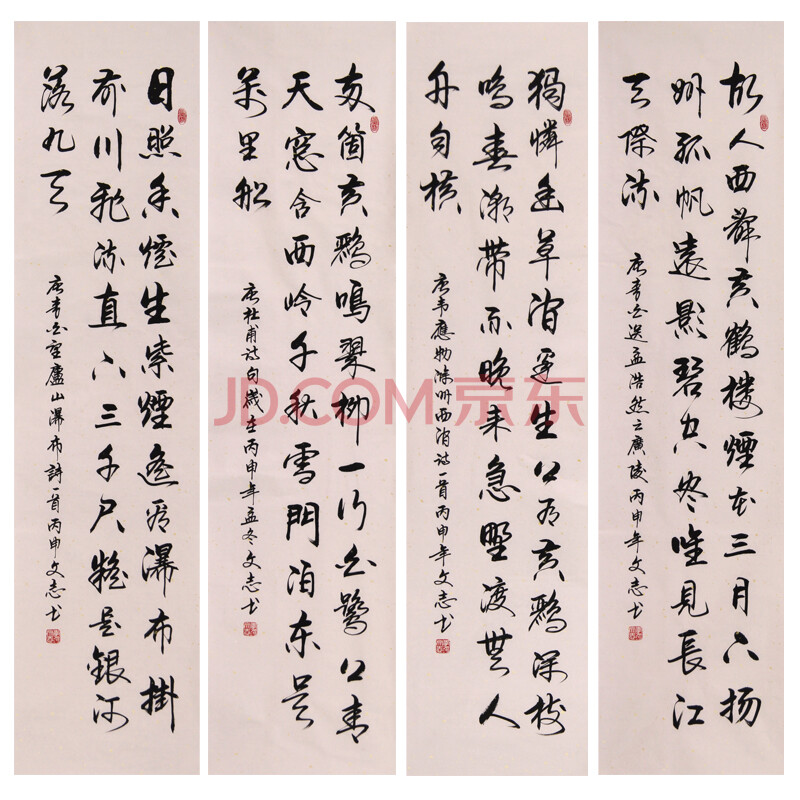 故人西辭黃鶴樓煙花三月下揚
州孤帆遠影碧空盡唯見長江
天際流
唐李白送孟浩然之廣陵丙申年文志书
獨憐幽草澗邊生上有黃鸝深樹
鳴春潮帶雨晚來急野渡無人
舟自橫
唐韋應物滁州西澗詩一首丙申年文志书
兩箇黃鸝鳴翠柳一行白鷺上青
天窓含西岭千秋雪門泊东吳
萬里船
唐杜甫詩句歲在丙申年孟冬文志书
日照香爐生紫煙遙看瀑布掛
前川飛流直下三千尺疑是銀河
落九天
唐李白望廬山瀑布詩一首丙申文志书
JD.COM 京东